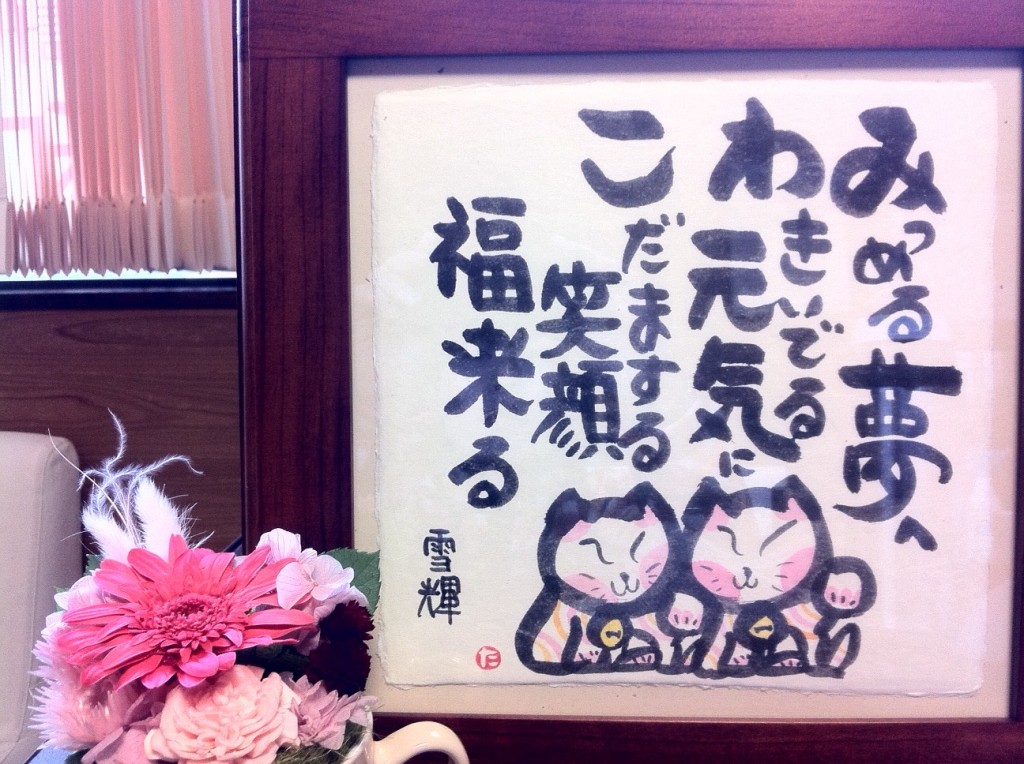 みつめる夢へ
わきいでる
元気に
こだまする
笑顔
福来る
雪輝